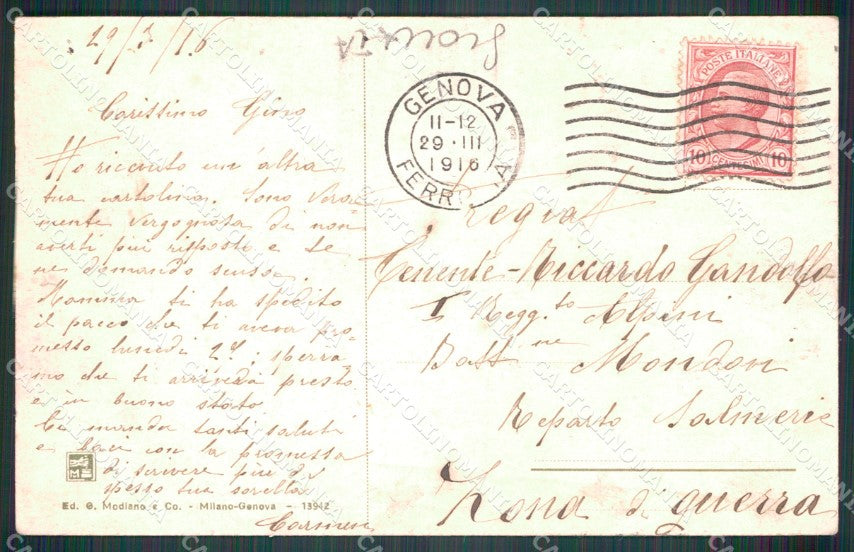 29/3/16
Carissimo Gino
Ho ricevuto un'altra
tua cartolina. Sono vera
mente vergognosa di non
averti più risposto e te
ne domando scusa.
Mamma ti ha spedito
il pacco che ti aveva pro
messo lunedì 27; speria
mo che ti arrivi presto
e in buono stato
Ti manda tanti saluti
e baci con la promessa
di scrivere più di
spesso tua sorella
Carmen
Ed. G. Modiano e Co. - Milano-Genova - 13942
GENOVA
11-12
29 · III
1916
FERROVIA
POSTE ITALIANE
10 CENTESIMI 10
Tenente - Riccardo Gandolfo
I Regg.to Alpini
Batt.ne Mondovì
Reparto Salmerie
Zona di guerra
CARTOLINOMANIA